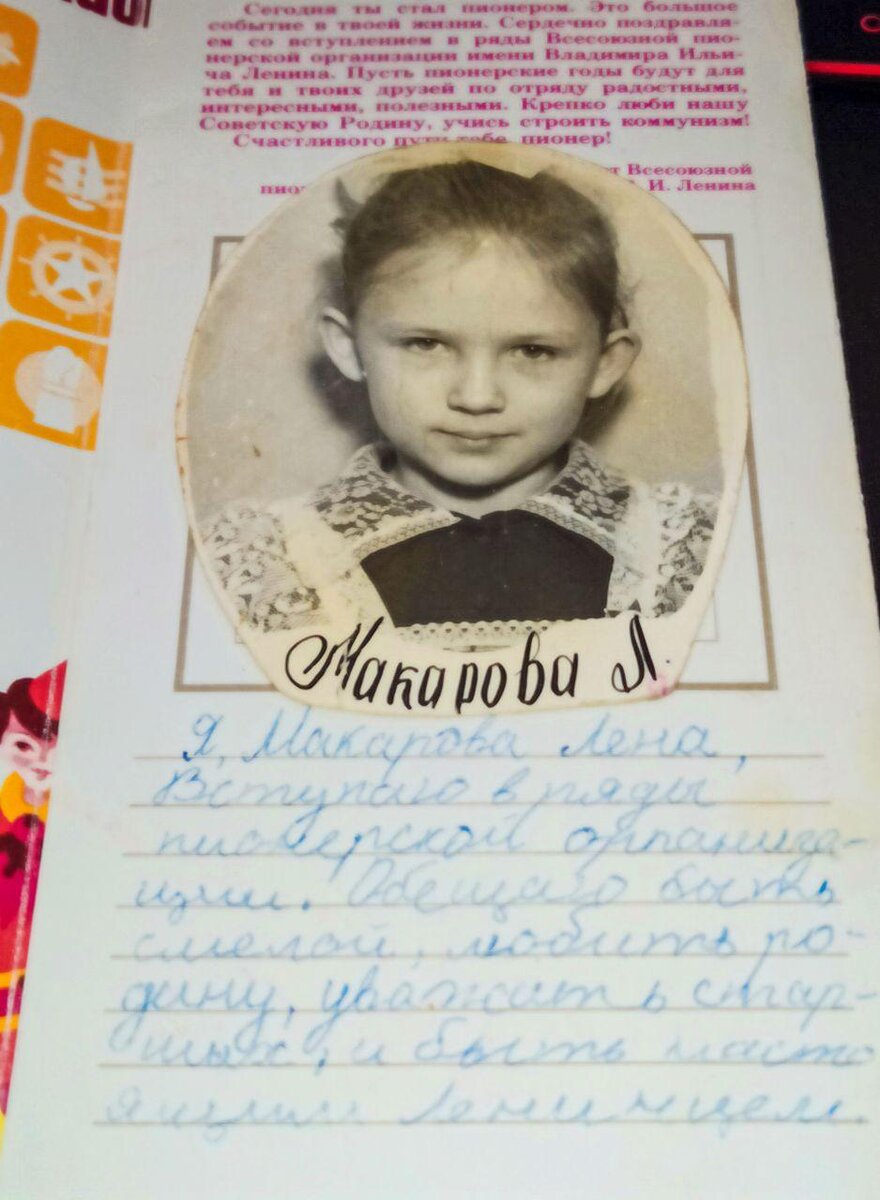 Сегодня ты стал пионером. Это большое
событие в твоей жизни. Сердечно поздравля-
ем со вступлением в ряды Всесоюзной пио-
нерской организации имени Владимира Ильи-
ча Ленина. Пусть пионерские годы будут для
тебя и твоих друзей по отряду радостными,
интересными, полезными. Крепко люби нашу
Советскую Родину, учись строить коммунизм!
Счастливого пути тебе, пионер!
Всесоюзной
И. Ленина
Макарова Л.
Я, Макарова Лена,
Вступаю в ряды
пионерской организа-
ции. Обещаю быть
смелой, любить ро-
дину, уважать стар-
ших, и быть насто
ящим Ленинцем.